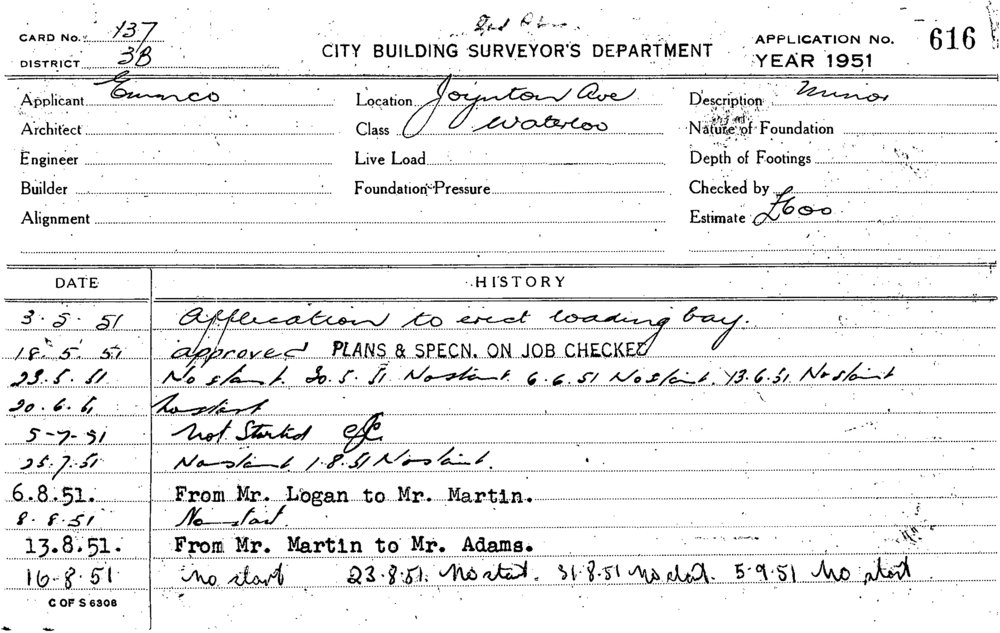 CARD No. 137
CITY BUILDING SURVEYOR'S DEPARTMENT
APPLICATION No. 616
DISTRICT 3B
YEAR 1951
Applicant Emmco Location Joynton Ave Description Minor
Architect Class Waterloo Nature of Foundation
Engineer Live Load Depth of Footings
Builder Foundation Pressure Checked by
Alignment Estimate £600
DATE HISTORY
3.5.51 Application to erect loading bay.
18.5.51 approved PLANS & SPECN. ON JOB CHECKED
23.5.51 No start. 30.5.51 No start. 6.6.51 No start. 13.6.51 No start
20.6.51 No start
5-7-51 Not Started
25.7.51 No start 1.8.51 No start.
6.8.51. From Mr. Logan to Mr. Martin.
8.8.51 No start.
13.8.51. From Mr. Martin to Mr. Adams.
16-8-51 No start 23.8.51. No start. 31.8.51 No start. 5-9-51 No start
C OF S 6308